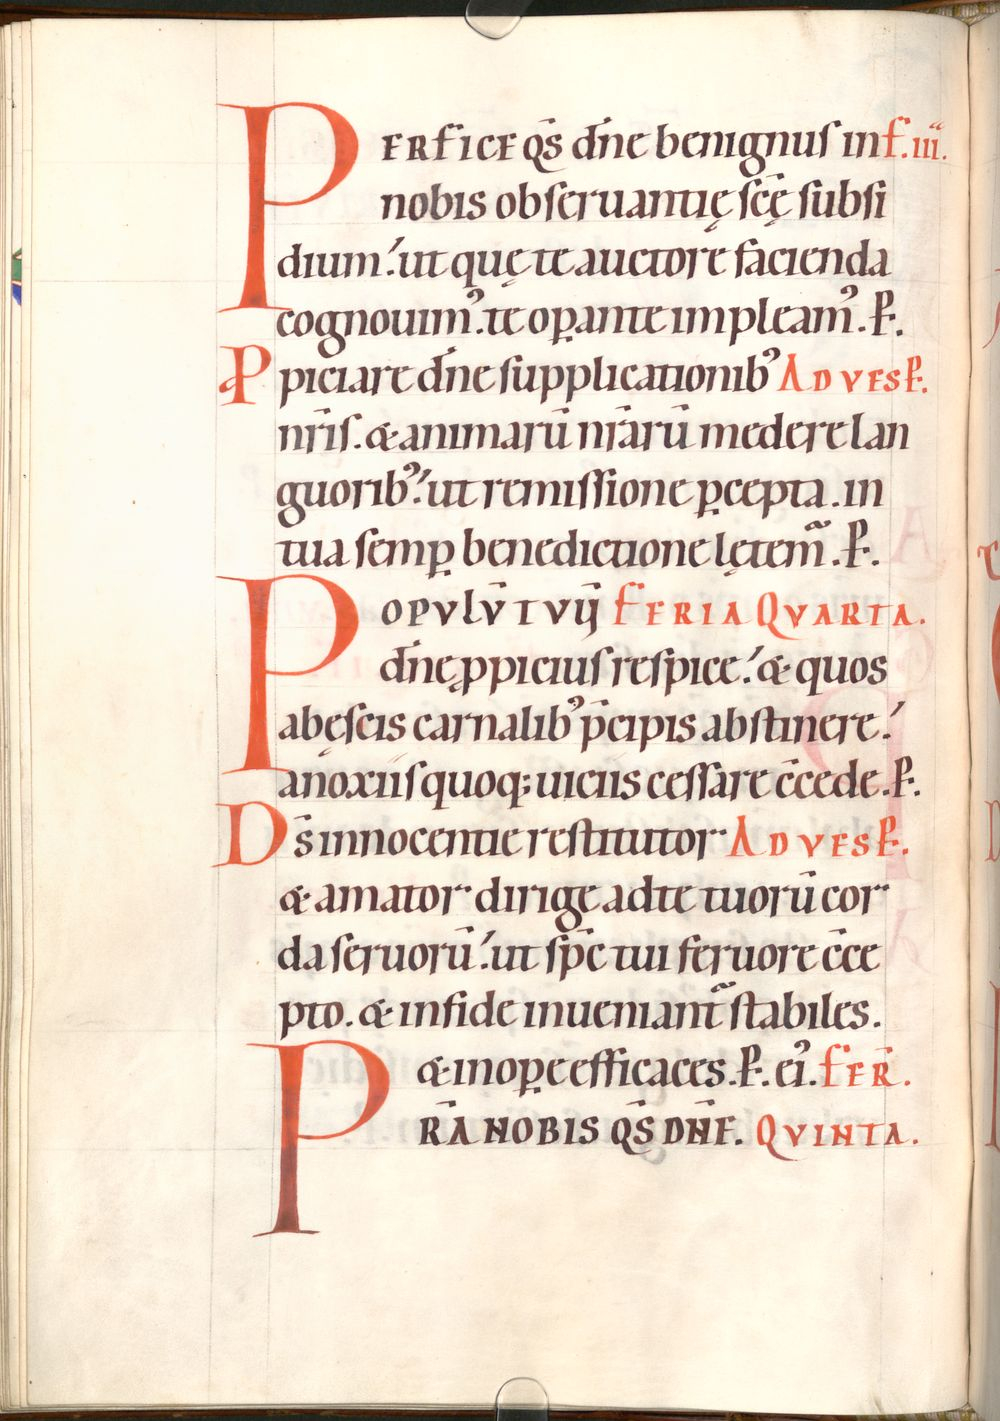 PERFICE q̄s dn̄e benignus in f. iii.
nobis obseruantię scę̄ subsi
dium. ut quę te auctore facienda
cognouim᾿. te oꝑante impleam᾿. P.
Ꝓpiciare dn̄e supplicationib᾿ AD VESP.
nr̄is. & animarū nr̄arū medere lan
guorib᾿. ut remissione ꝑcepta. in
tua semꝑ benedictione lętem̄. P.
POPVLV̄ TVV̄ FERIA QVARTA.
dn̄e ꝓpicius respice. & quos
ab ęscis carnalib᾿ p̄cipis abstinere.
a noxiis quoq; uiciis cessare c̄cede. P.
Ds̄ innocentie restitutor AD VESP.
& amator dirige ad te tuorū cor
da seruorū. ut sp̄c tui feruore c̄ce
pto. & in fide inueniant̄ stabiles.
& in oꝑe efficaces. P. ei᾿. FER̄.
PRĀ NOBIS Q̄S DN̄E. QVINTA.